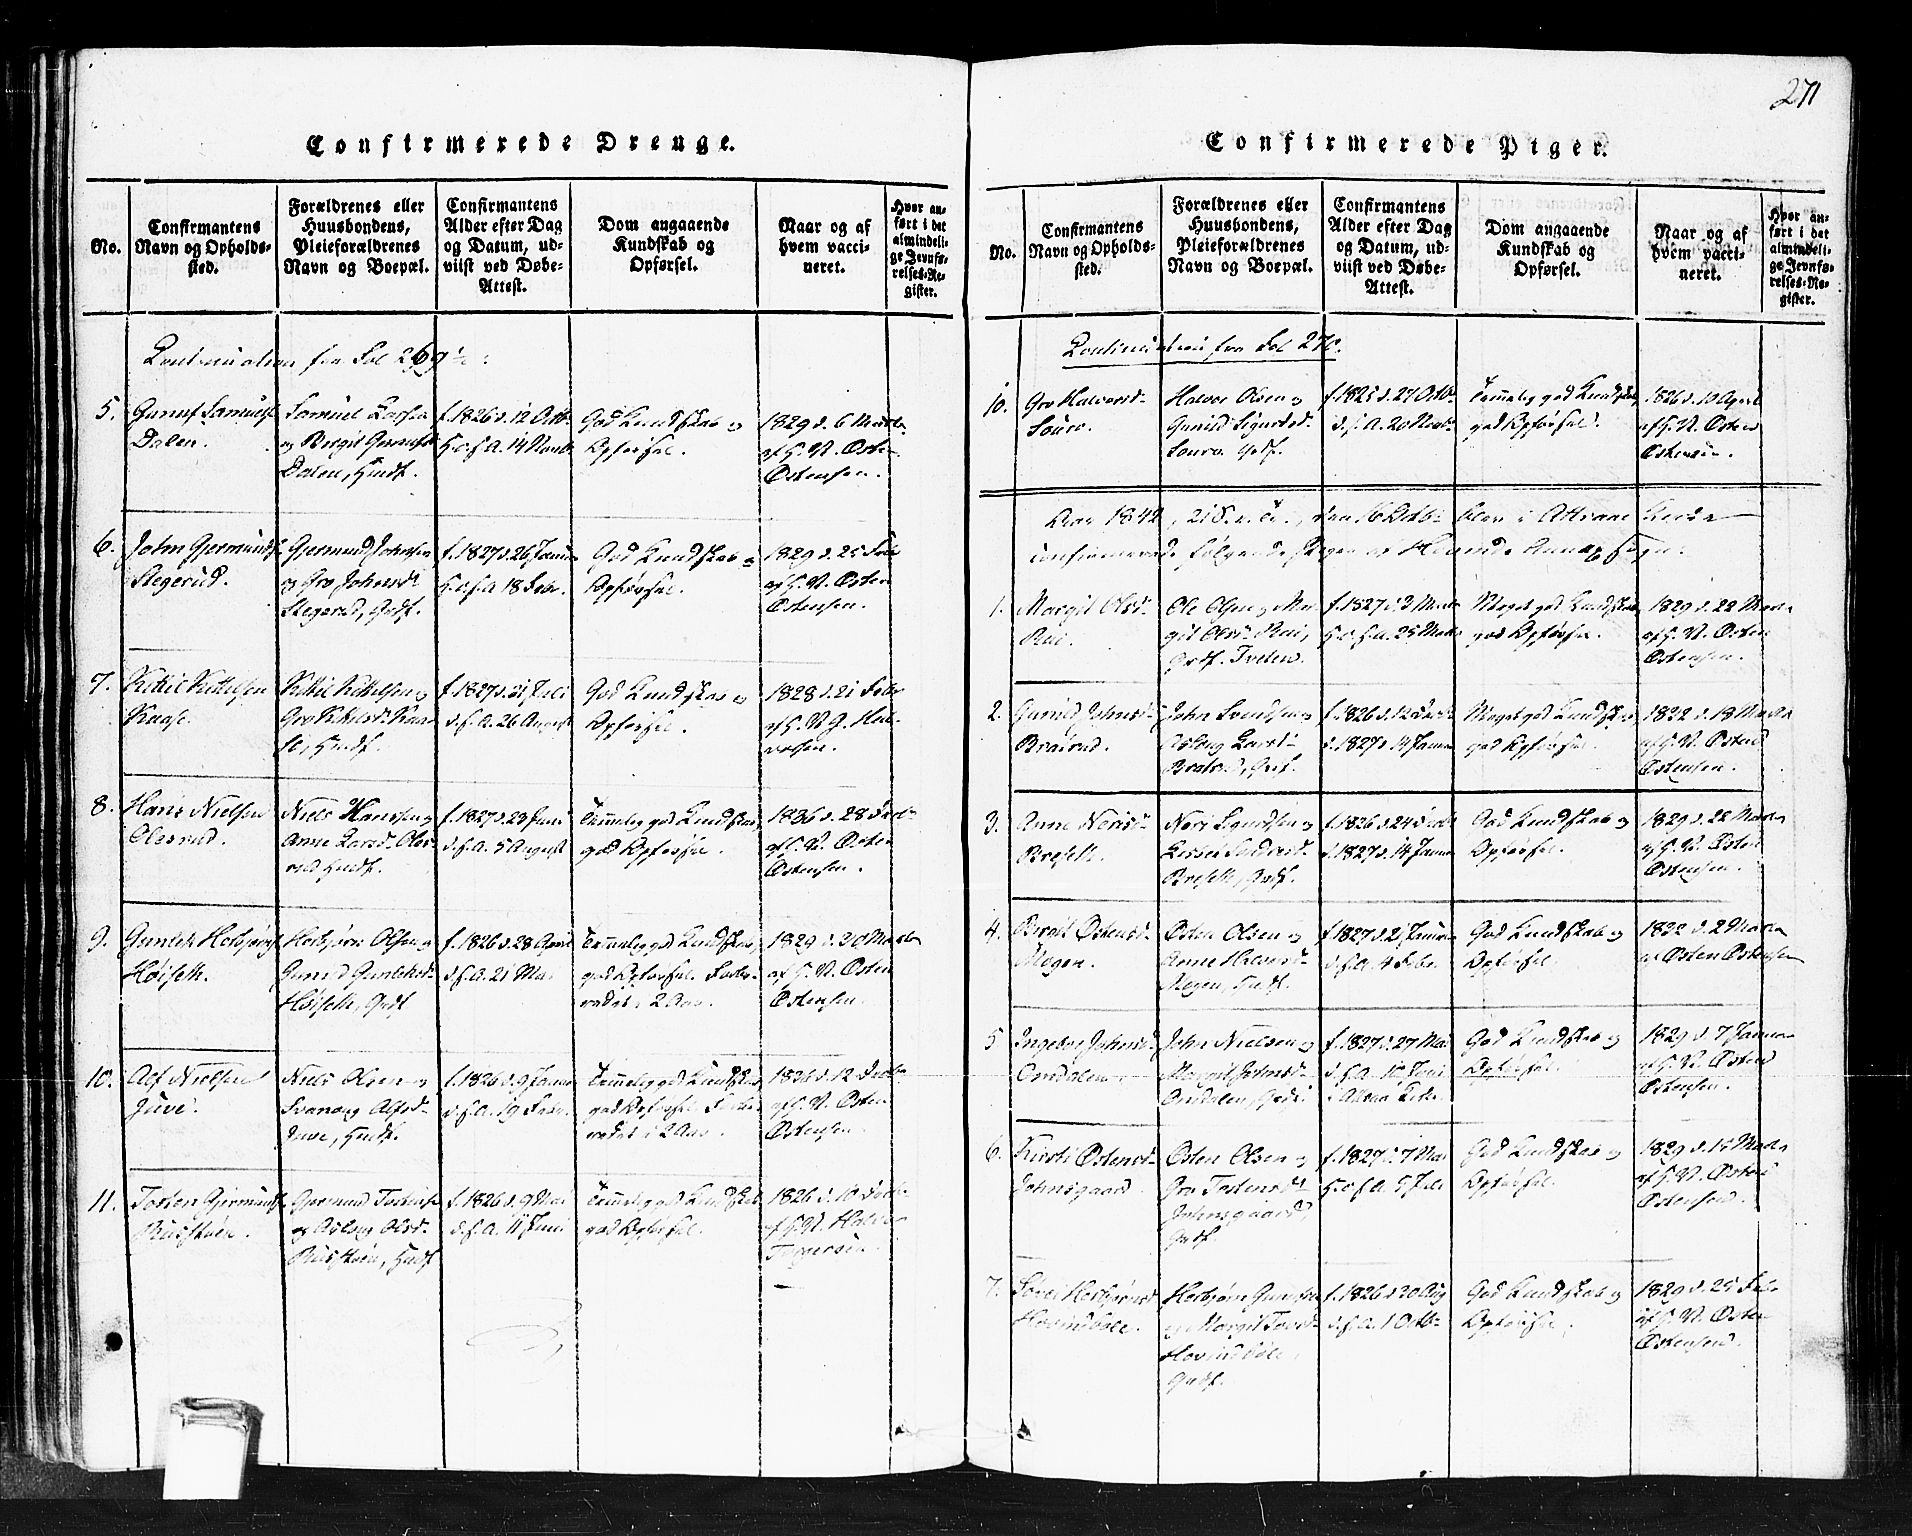 271
Confirmerede Drenge.
No.
Confirmantens
Navn og Opholds-
sted.
Forældrenes eller
Huusbondens,
Pleieforældrenes
Navn og Boepæl.
Confirmantens
Alder efter Dag
og Datum, ud-
viist ved Døbe-
Attest.
Dom angaaende
Kundskab og
Opførsel.
Naar og af
hvem vacci-
neret.
Hvor an-
ført i det
almindeli-
ge Jevnfø-
relses-Re-
gister.
Continuation fra Fol 269½:
5.
Gunuf Samuels.
Dalen.
Samuel
og Birgit
Dalen, Huusf.
f. 1826 d. 12 Octb
14 Novb.
God Kundskab og
Opførsel.
1829 d. 6 Marts
af G. N. Østen
Østensen.
6.
John Germunds.
Stegerud.
Germund Johnsen
og Gro Johnsd.
Stegerud, Gadf.
f. 1827 d. 26 Janua
18 Febr.
God Kundskab og
Opførsel.
1829 d. 25 Feb
af G. N. Østen
Østensen.
7.
Kittil Kittelsen
Kaase.
Kittil Kittelsen og
Gro Kittilsd. Kaa-
se, Huusf.
f. 1827 d. 21 Juli
d.s.A. 26 August
God Kundskab og
Opførsel.
1828 d. 21 Febr
af G. N. G. Hal-
vorsen.
8.
Hans Nielsen
Olesrud.
Niels Hansen og
Anne Larsd. Oles-
rud Huusf.
f. 1827 d. 23 Juni
d.s.A. 5 August
Temmelig god Kundskab,
god Opførsel.
1836 d. 28 Octb.
af G. N. Østen
Østensen.
9.
Gunlek Herbjørns.
Høiseth.
Herbjørn Olsen og
Gunild Gunleksd.
Høiseth, Gadf
f. 1826 d. 28 April
d.s.A. 21 Mai
Temmelig god Kundskab,
god Opførsel.
i 2 Aar.
1829 d. 20 Marts
af G. N. Østen
Østensen.
10.
Alf Nielsen
Juve.
Niels Olsen og
Svanaug Alfsd.
Juve, Huusf.
f. 1826 d. 9 Janua
d.s.A. 19 Febr.
Temmelig god Kundskab
god Opførsel
i 2 Aar.
1836 d. 12 Octb.
af G. N. Østen
Østensen.
11.
Torsten Germunds.
Germund Torstens.
og Aslaug Olsd.
Huusf
f. 1826 d. 9 Mai
d.s.A. 11 Juni
Temmelig god Kundskab
god Opførsel.
1826 d. 10 Octb.
af G. N. Halvor
Torgersen.
Confirmerede Piger.
No.
Confirmantens
Navn og Opholds-
sted.
Forældrenes eller
Huusbondens,
Pleieforældrenes
Navn og Boepæl.
Confirmantens
Alder efter Dag
og Datum, ud-
viist ved Døbe-
Attest.
Dom angaaende
Kundskab og
Opførsel.
Naar og af
hvem vacci-
neret.
Hvor an-
ført i det
almindeli-
ge Jevnfø-
relses-Re-
gister.
Continuation fra Fol 270.
10.
Gro Halvorsd.
Halvor Olsen og
Gunild Sigurdsd.
Gadf.
f. 1825 d. 27 Octb.
d.s.A. 20 Novb.
Temmelig god Kundskab,
god Opførsel.
1826 d. 10 April
af G. N. Østen
Østensen.
Aar 1842, 21 S. e. Tr., den 16 Octb. blev i Attraae Kirke
confirmerede følgende Piger af Hovinds Annexsogn:
1.
Margit Olsd.
Rui.
Ole Olsen og Mar
git Olsd. Rui,
Gadf.
f. 1827 d. 3 Marts
25 Marts
Meget god Kundskab,
god Opførsel.
1829 d. 22 Marts
af G. N. Østen
Østensen.
2.
Gunild Johnsd.
John
Aslaug
Gadf.
f. 1826 d. 12
d. 1827 d. 14 Janua
Meget god Kundskab
god Opførsel.
1832 d. 18 Marts
af G. N. Østen
Østensen.
3.
Anne Nerisd.
Breseth.
Neri Sigurdsen og
Breseth, Gadf.
f. 1826 d. 24
d. 1827 d. 14 Janua
God Kundskab og
Opførsel.
1829 d. 22 Marts
af G. N. Østen
Østensen.
4.
Birgit Østensd.
Mogen.
Østen Olsen og
Anne Halvorsd.
Mogen,
f. 1827 d. 2 Janua
d.s.A. 4 Febr.
God Kundskab og
Opførsel.
1832 d. 2 Marts
af Østen Østensen
5
Ingeborg Johnsd.
Omdalen.
John Nielsen og
Margit Johnsd.
Omdalen,
f. 1827 d. 27 Mai
d.s.A. 10 Juni
God Kundskab og
Opførsel.
1829 d. 7 Janua
af G. N. Østen
Østensen.
6.
Kirsti Østensd.
Johnsgaard.
Østen Olsen og
Gro Torstensd.
Johnsgaard,
Gadf.
f. 1827 d. 7 Mai
5 Juli
God Kundskab og
Opførsel.
1829 d. 15 Marts
af G. N. Østen
Østensen.
7.
Herbjørnsd.
Hovindbøle.
Herbjørn
og Margit
Hovindbøle,
Gadf.
f. 1826 d. 20 Aug
d.s.A. 1 Octb.
God Kundskab og
Opførsel.
1829 d. 25 Feb
af G. N. Østen
Østensen.